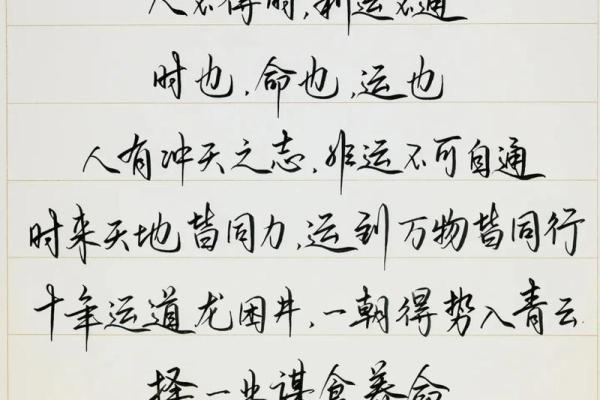 人不得时,利运不通
时也,命也,运也
人有冲天之志,非运不可自通
时来天地皆同力,运到万物皆同行
十年运道龙困井,一朝得势入青云
择一业谋食养命